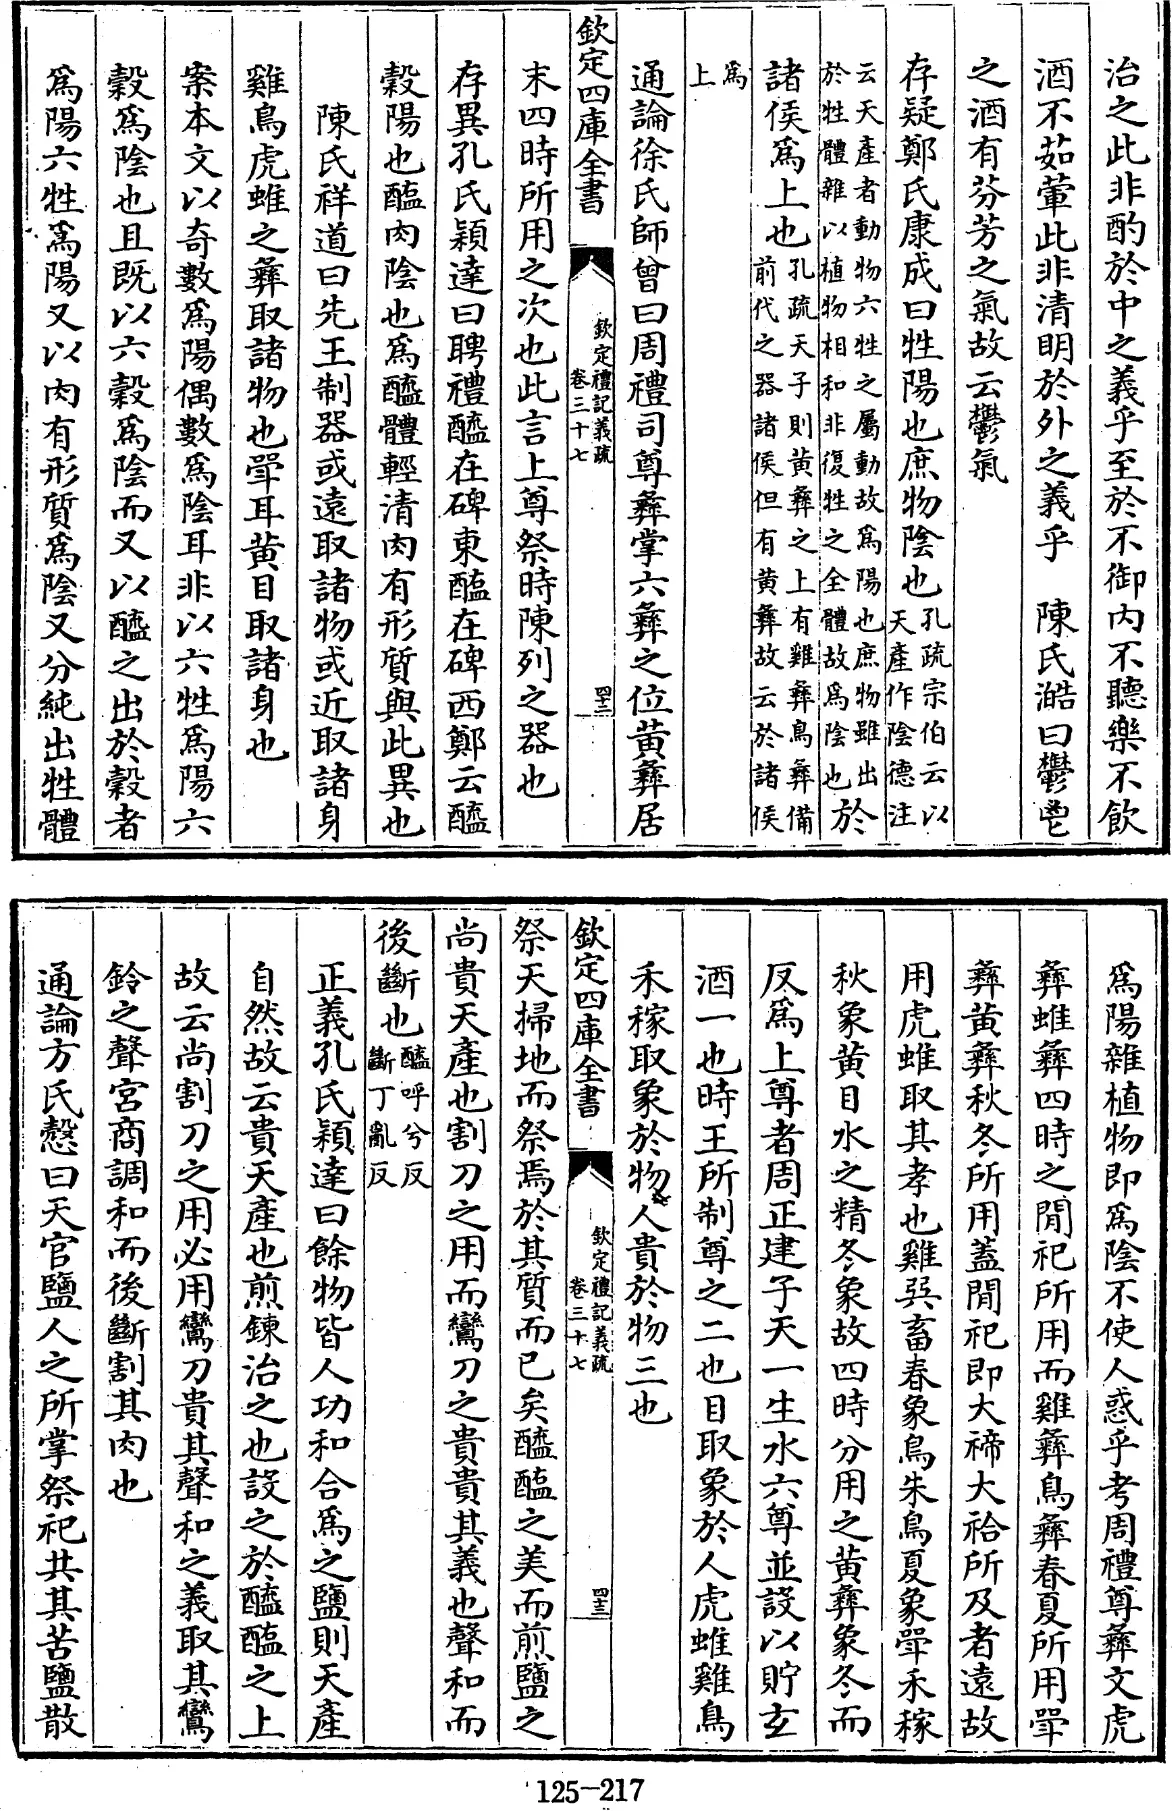 治之此非酌於中之義乎至於不御内不聽樂不飲
酒不茹葷此非清明於外之義乎　陳氏澔曰鬱鬯
之酒有芬芳之氣故云鬱氣
存疑鄭氏康成曰牲陽也庶物陰也孔疏宗伯云以天產作陰德注
云天產者動物六牲之屬動故為陽也庶物雖出於牲體雜以植物相和非復牲之全體故為陰也於
諸侯為上也孔疏天子則黄彝之上有雞彝鳥彝備前代之器諸侯但有黄彝故云於諸侯
為上
通論徐氏師曾曰周禮司尊彝掌六彝之位黄彝居
欽定四庫全書　欽定禮記義疏　卷三十七
末四時所用之次也此言上尊祭時陳列之器也
存異孔氏穎達曰聘禮醯在碑東醢在碑西鄭云醯
穀陽也醢肉陰也為醯體輕清肉有形質與此異也
陳氏祥道曰先王制器或遠取諸物或近取諸身
雞鳥虎蜼之彝取諸物也斝耳黄目取諸身也
案本文以奇數為陽偶數為陰耳非以六牲為陽六
穀為陰也且既以六穀為陰而又以醯之出於穀者
為陽六牲為陽又以肉有形質為陰又分純出牲體
為陽雜植物即為陰不使人惑乎考周禮尊彝文虎
彝蜼彝四時之閒祀所用而雞彝鳥彝春夏所用斝
彝黄彝秋冬所用蓋閒祀即大禘大祫所及者遠故
用虎蜼取其孝也雞㢲畜春象鳥朱鳥夏象斝禾稼
秋象黄目水之精冬象故四時分用之黄彝象冬而
反為上尊者周正建子天一生水六尊並設以貯玄
酒一也時王所制尊之二也目取象於人虎蜼雞鳥
禾稼取象於物人貴於物三也
欽定四庫全書　欽定禮記義疏　卷三十七
祭天掃地而祭焉於其質而已矣醯醢之美而煎鹽之
尚貴天產也割刀之用而鸞刀之貴貴其義也聲和而
後斷也醯呼兮反斷丁亂反
正義孔氏穎達曰餘物皆人功和合為之鹽則天產
自然故云貴天產也煎鍊治之也設之於醯醢之上
故云尚割刀之用必用鸞刀貴其聲和之義取其鸞
鈴之聲宮商調和而後斷割其肉也
通論方氏慤曰天官鹽人之所掌祭祀共其苦鹽散
125-217